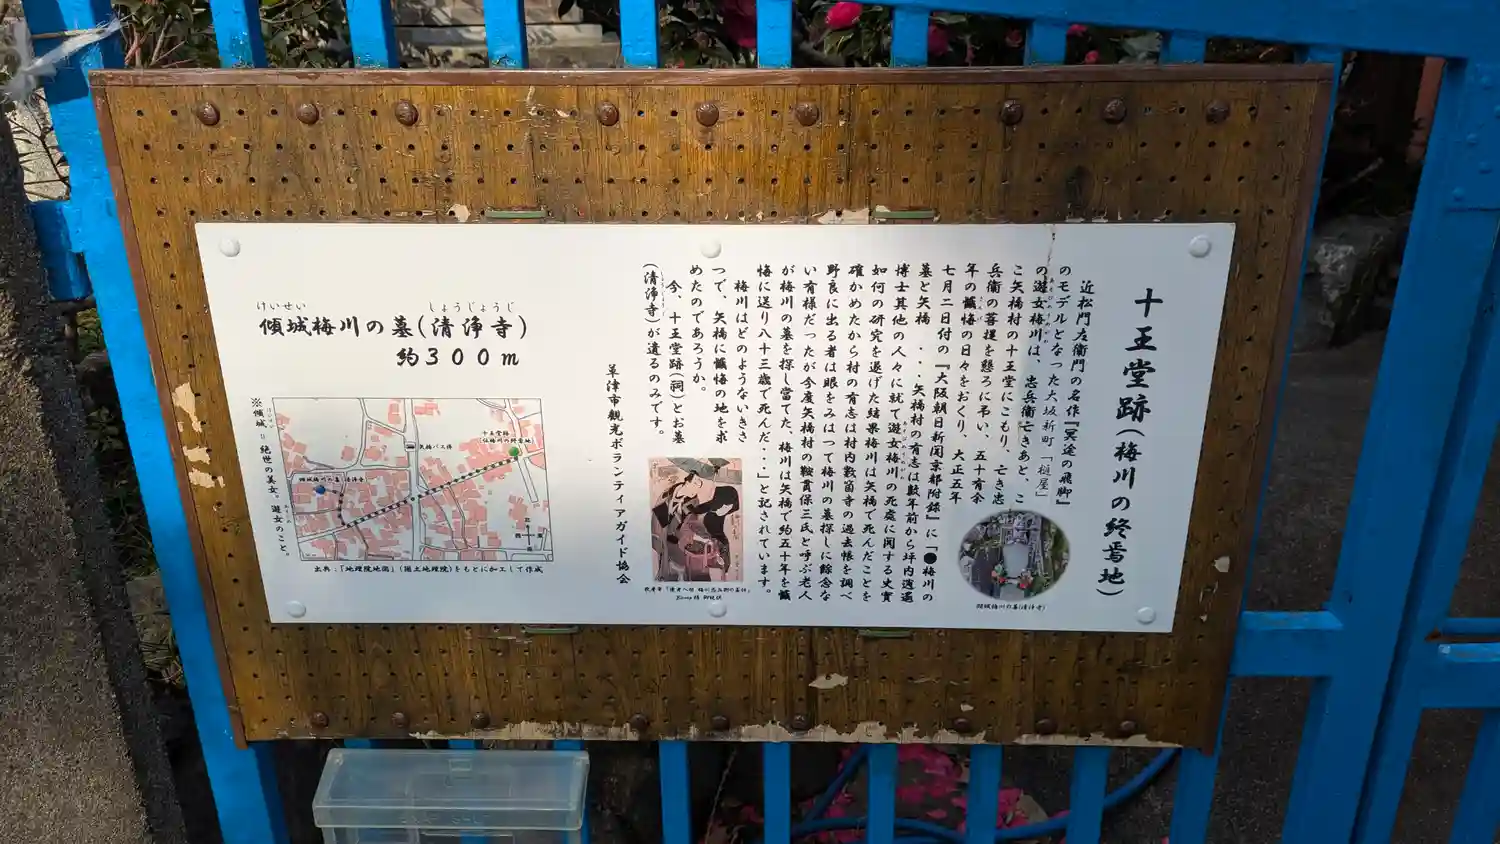 十王堂跡(梅川の終焉地)
近松門左衛門の名作『冥途の飛脚』
のモデルとなった大坂新町「槌屋」
の遊女梅川は、忠兵衛亡きあと、こ
こ矢橋村の十王堂にこもり、亡き忠
兵衛の菩提を懇ろに弔い、五十有余
年の懺悔の日々をおくり、大正五年
七月二日付の『大阪朝日新聞京都附録』に「●梅川の
墓と矢橋・・・矢橋村の有志は数年前から坪内逍遥
博士其他の人々に就て遊女梅川の死處に関する史實
如何の研究を遂げた結果梅川は矢橋で死んだことを
確かめたから村の有志は村内数箇寺の過去帳を調べ
野良に出る者は眼をみはつて梅川の墓探しに餘念な
い有様だったが今度矢橋村の鞍貫保三氏と呼ぶ老人
が梅川の墓を探し當てた、梅川は矢橋で約五十年を懺
悔に送り八十三歳で死んだ・・・」と記されています。
梅川はどのようないきさ
つで、矢橋に懺悔の地を求
めたのであろうか。
今、十王堂跡(祠)とお墓
(清浄寺)が遺るのみです。
草津市観光ボランティアガイド協会
傾城梅川の墓(清浄寺)
けいせい
しょうじょうじ
約300m
十王堂跡
(伝梅川の終焉地)
矢橋バス停
傾城梅川の墓(清浄寺)
北
西
東
南
出典:「地理院地図」(国土地理院)をもとに加工して作成
※傾城=絶世の美女。遊女のこと。
傾城梅川の墓(清浄寺)